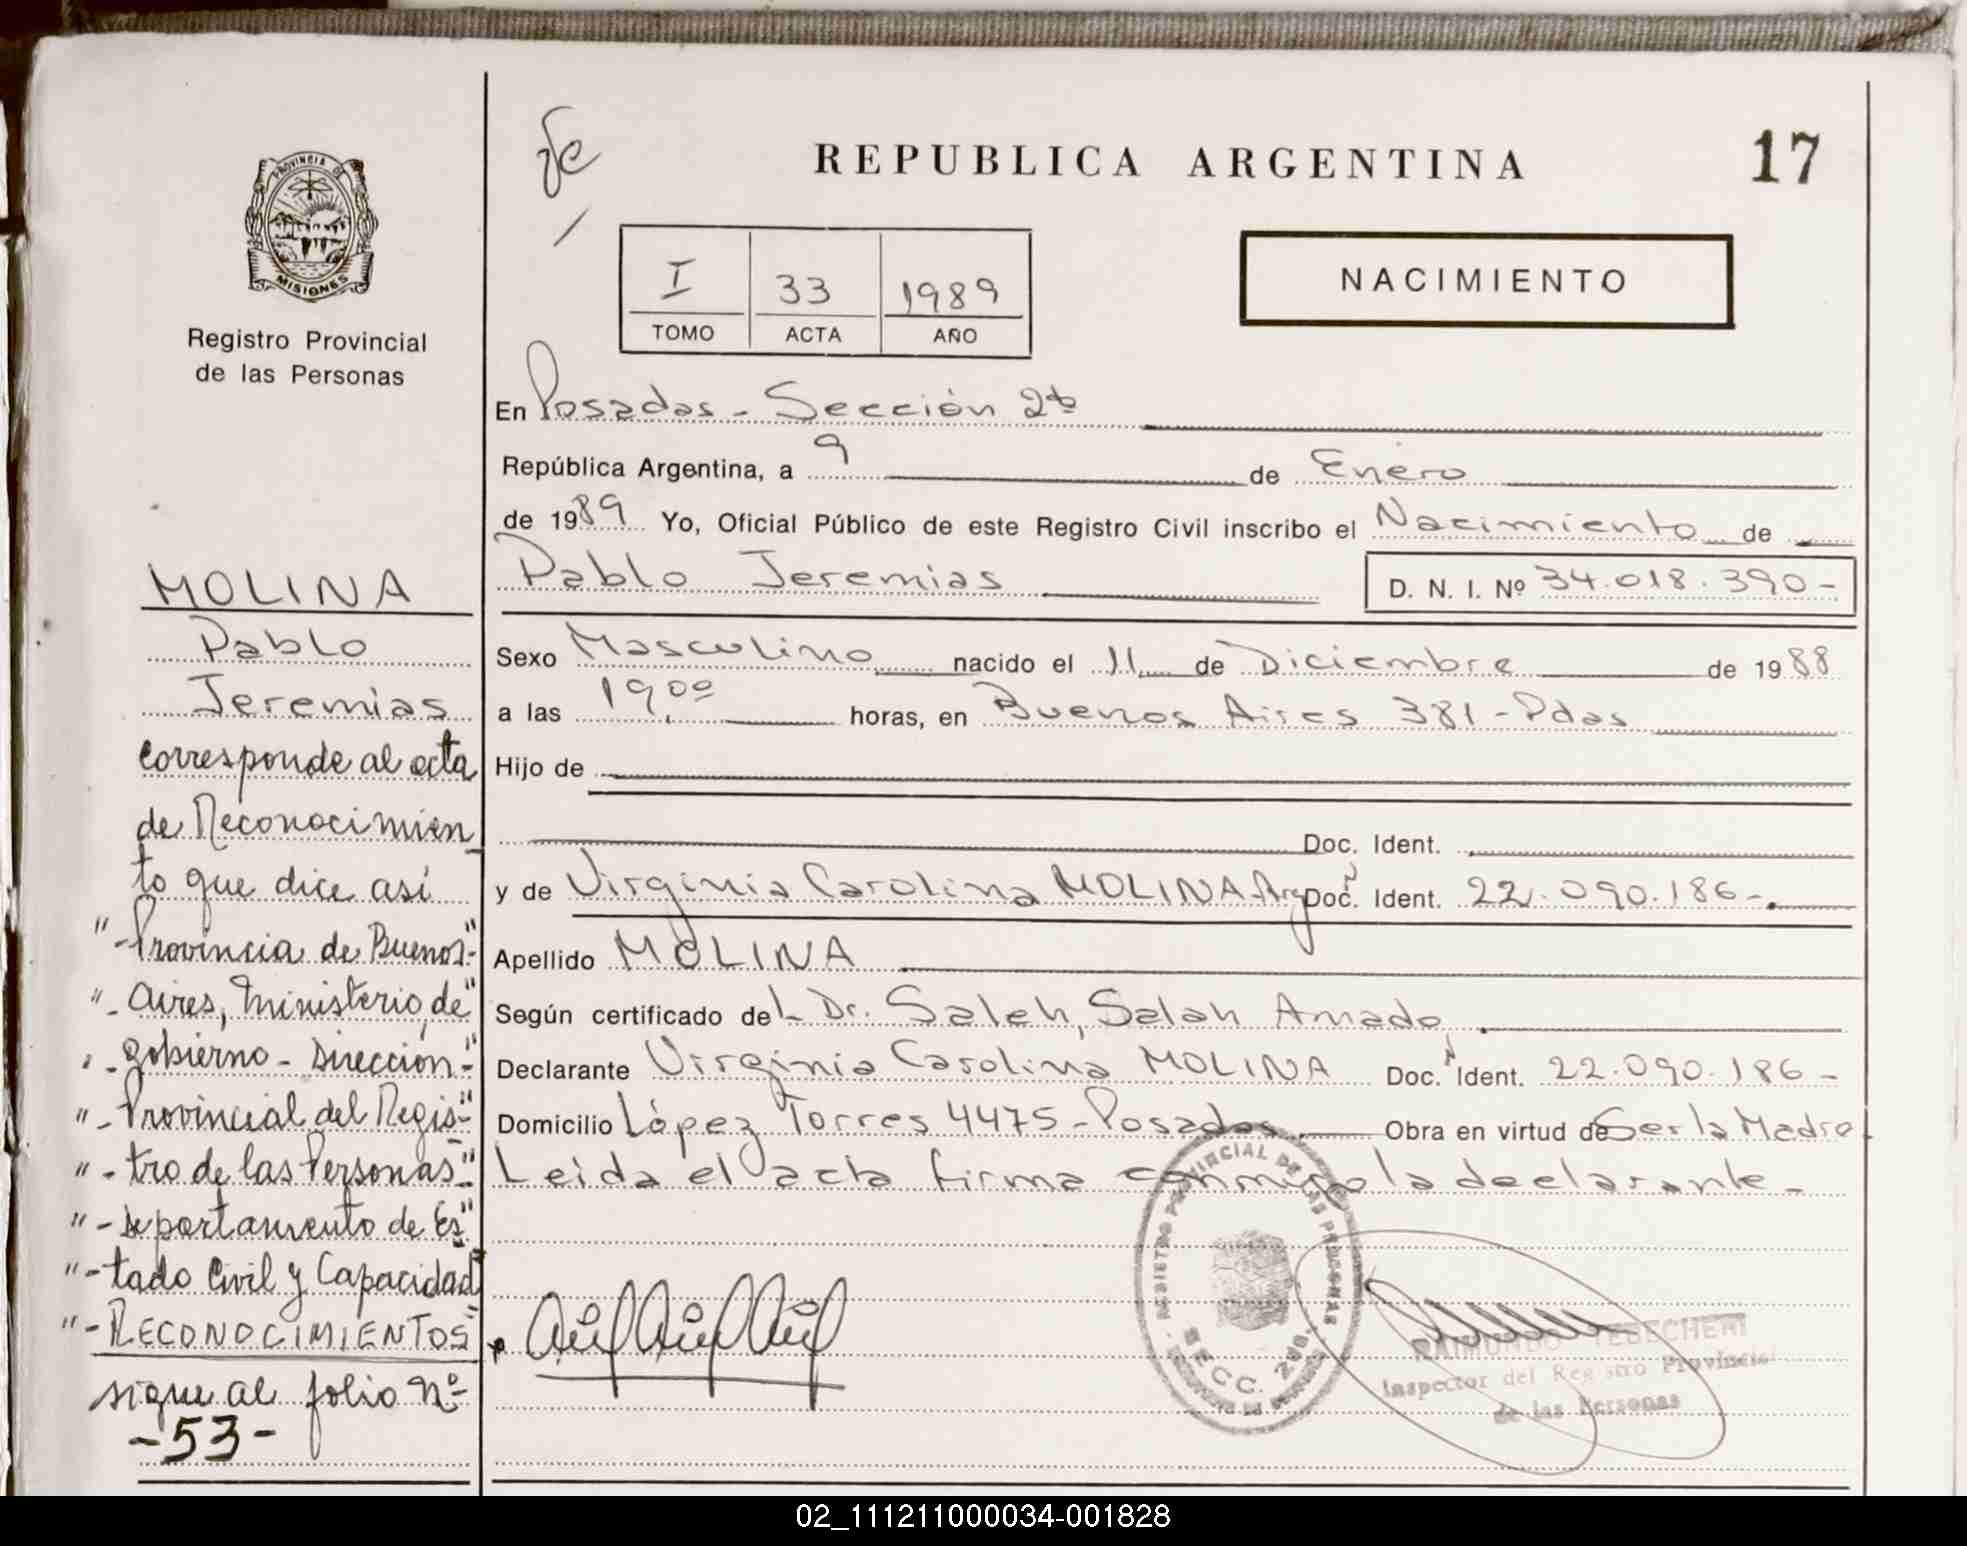 PROVINCIA DE
MISIONES
Registro Provincial
de las Personas
MOLINA
Pablo
Jeremias
Corresponde al acta
de Reconocimien
to que dice así
"-Provincia de Buenos-"
"-Aires, Ministerio de"
"-Gobierno - Dirección-"
"-Provincial del Regis-"
"-tro de las Personas-"
"-Departamento de Es"
"-tado Civil y Capacidad"
"-RECONOCIMIENTOS"
sigue al folio Nº
-53-
REPUBLICA ARGENTINA 17
I 33 1989
TOMO ACTA AÑO
NACIMIENTO
En Posadas - Sección 2da
República Argentina, a 9 de Enero
de 1989 Yo, Oficial Público de este Registro Civil inscribo el Nacimiento de
Pablo Jeremias D. N. I. Nº 34.018.390-
Sexo Masculino nacido el 11 de Diciembre de 1988
a las 19,00 horas, en Buenos Aires 381-Pdas
Hijo de
Doc. Ident.
y de Virginia Carolina MOLINA Arg Doc. Ident. 22.090.186-.
Apellido MOLINA
Según certificado del Dr. Saleh, Salah Amado.
Declarante Virginia Carolina MOLINA Doc. Ident. 22.090.186-
Domicilio López Torres 4475-Posadas. Obra en virtud de Ser la Madre.
Leida el acta firma conmigo la declarante-
REGISTRO PROVINCIAL DE LAS PERSONAS
SECC. 2da.
RAIMUNDO TEBECHERI
Inspector del Registro Provincial
de las Personas
02_111211000034-001828